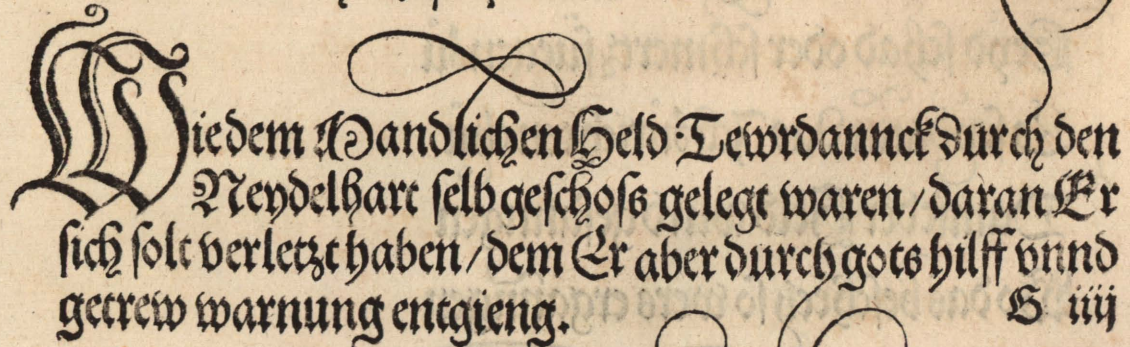 Wie dem Mandlichen Held Tewrdannck durch den
Neydelhart selbgeschoss gelegt waren / daran Er
sich solt verletzt haben / dem Er aber durch gots hilff vnnd
getrew warnung entgieng.
G iiij